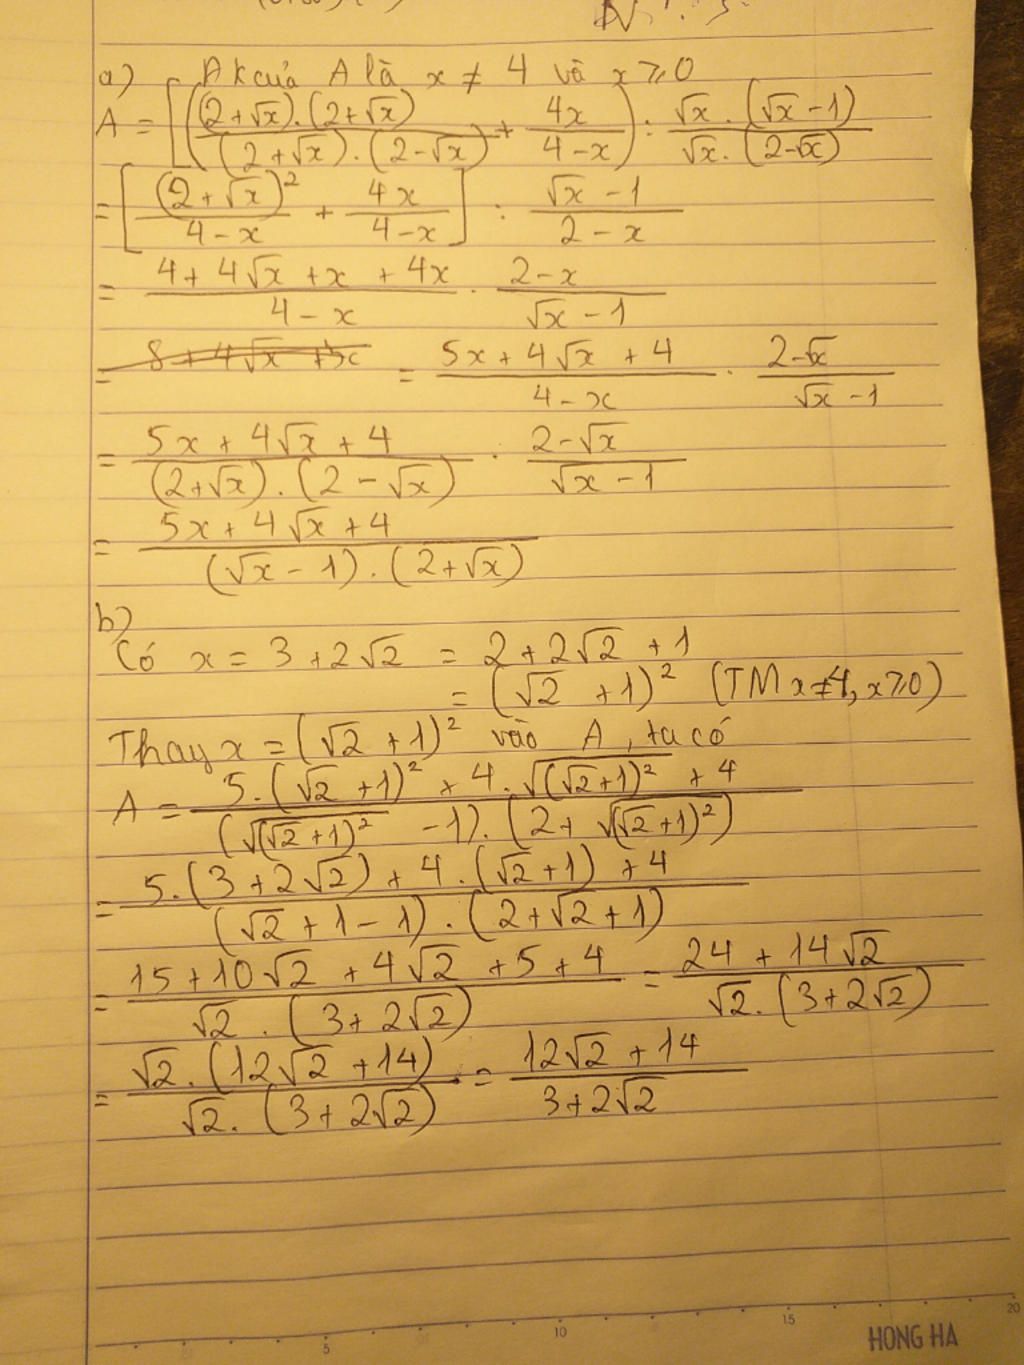 a) ĐK của A là x ≠ 4 và x ⩾ 0
A = [((2+√x).(2+√x))/((2+√x).(2-√x)) + 4x/(4-x)) : (√x.(√x-1))/(√x.(2-√x))
= [(2+√x)²/(4-x) + 4x/(4-x)] : (√x-1)/(2-x)
= (4+4√x+x+4x)/(4-x) . (2-x)/(√x-1)
= 8+4√x+5x = (5x+4√x+4)/(4-x) . (2-√x)/(√x-1)
= (5x+4√x+4)/((2+√x).(2-√x)) . (2-√x)/(√x-1)
= (5x+4√x+4)/((√x-1).(2+√x))
b)
Có x = 3+2√2 = 2+2√2+1
= (√2+1)² (TM x≠4, x⩾0)
Thay x = (√2+1)² vào A, ta có
A = (5.(√2+1)²+4.√((√2+1)²)+4)/((√((√2+1)²)-1).(2+√((√2+1)²)))
= (5.(3+2√2)+4.(√2+1)+4)/((√2+1-1).(2+√2+1))
= (15+10√2+4√2+5+4)/(√2.(3+2√2)) = (24+14√2)/(√2.(3+2√2))
= (√2.(12√2+14))/(√2.(3+2√2)) = (12√2+14)/(3+2√2)
5 10 15 20
HONG HA